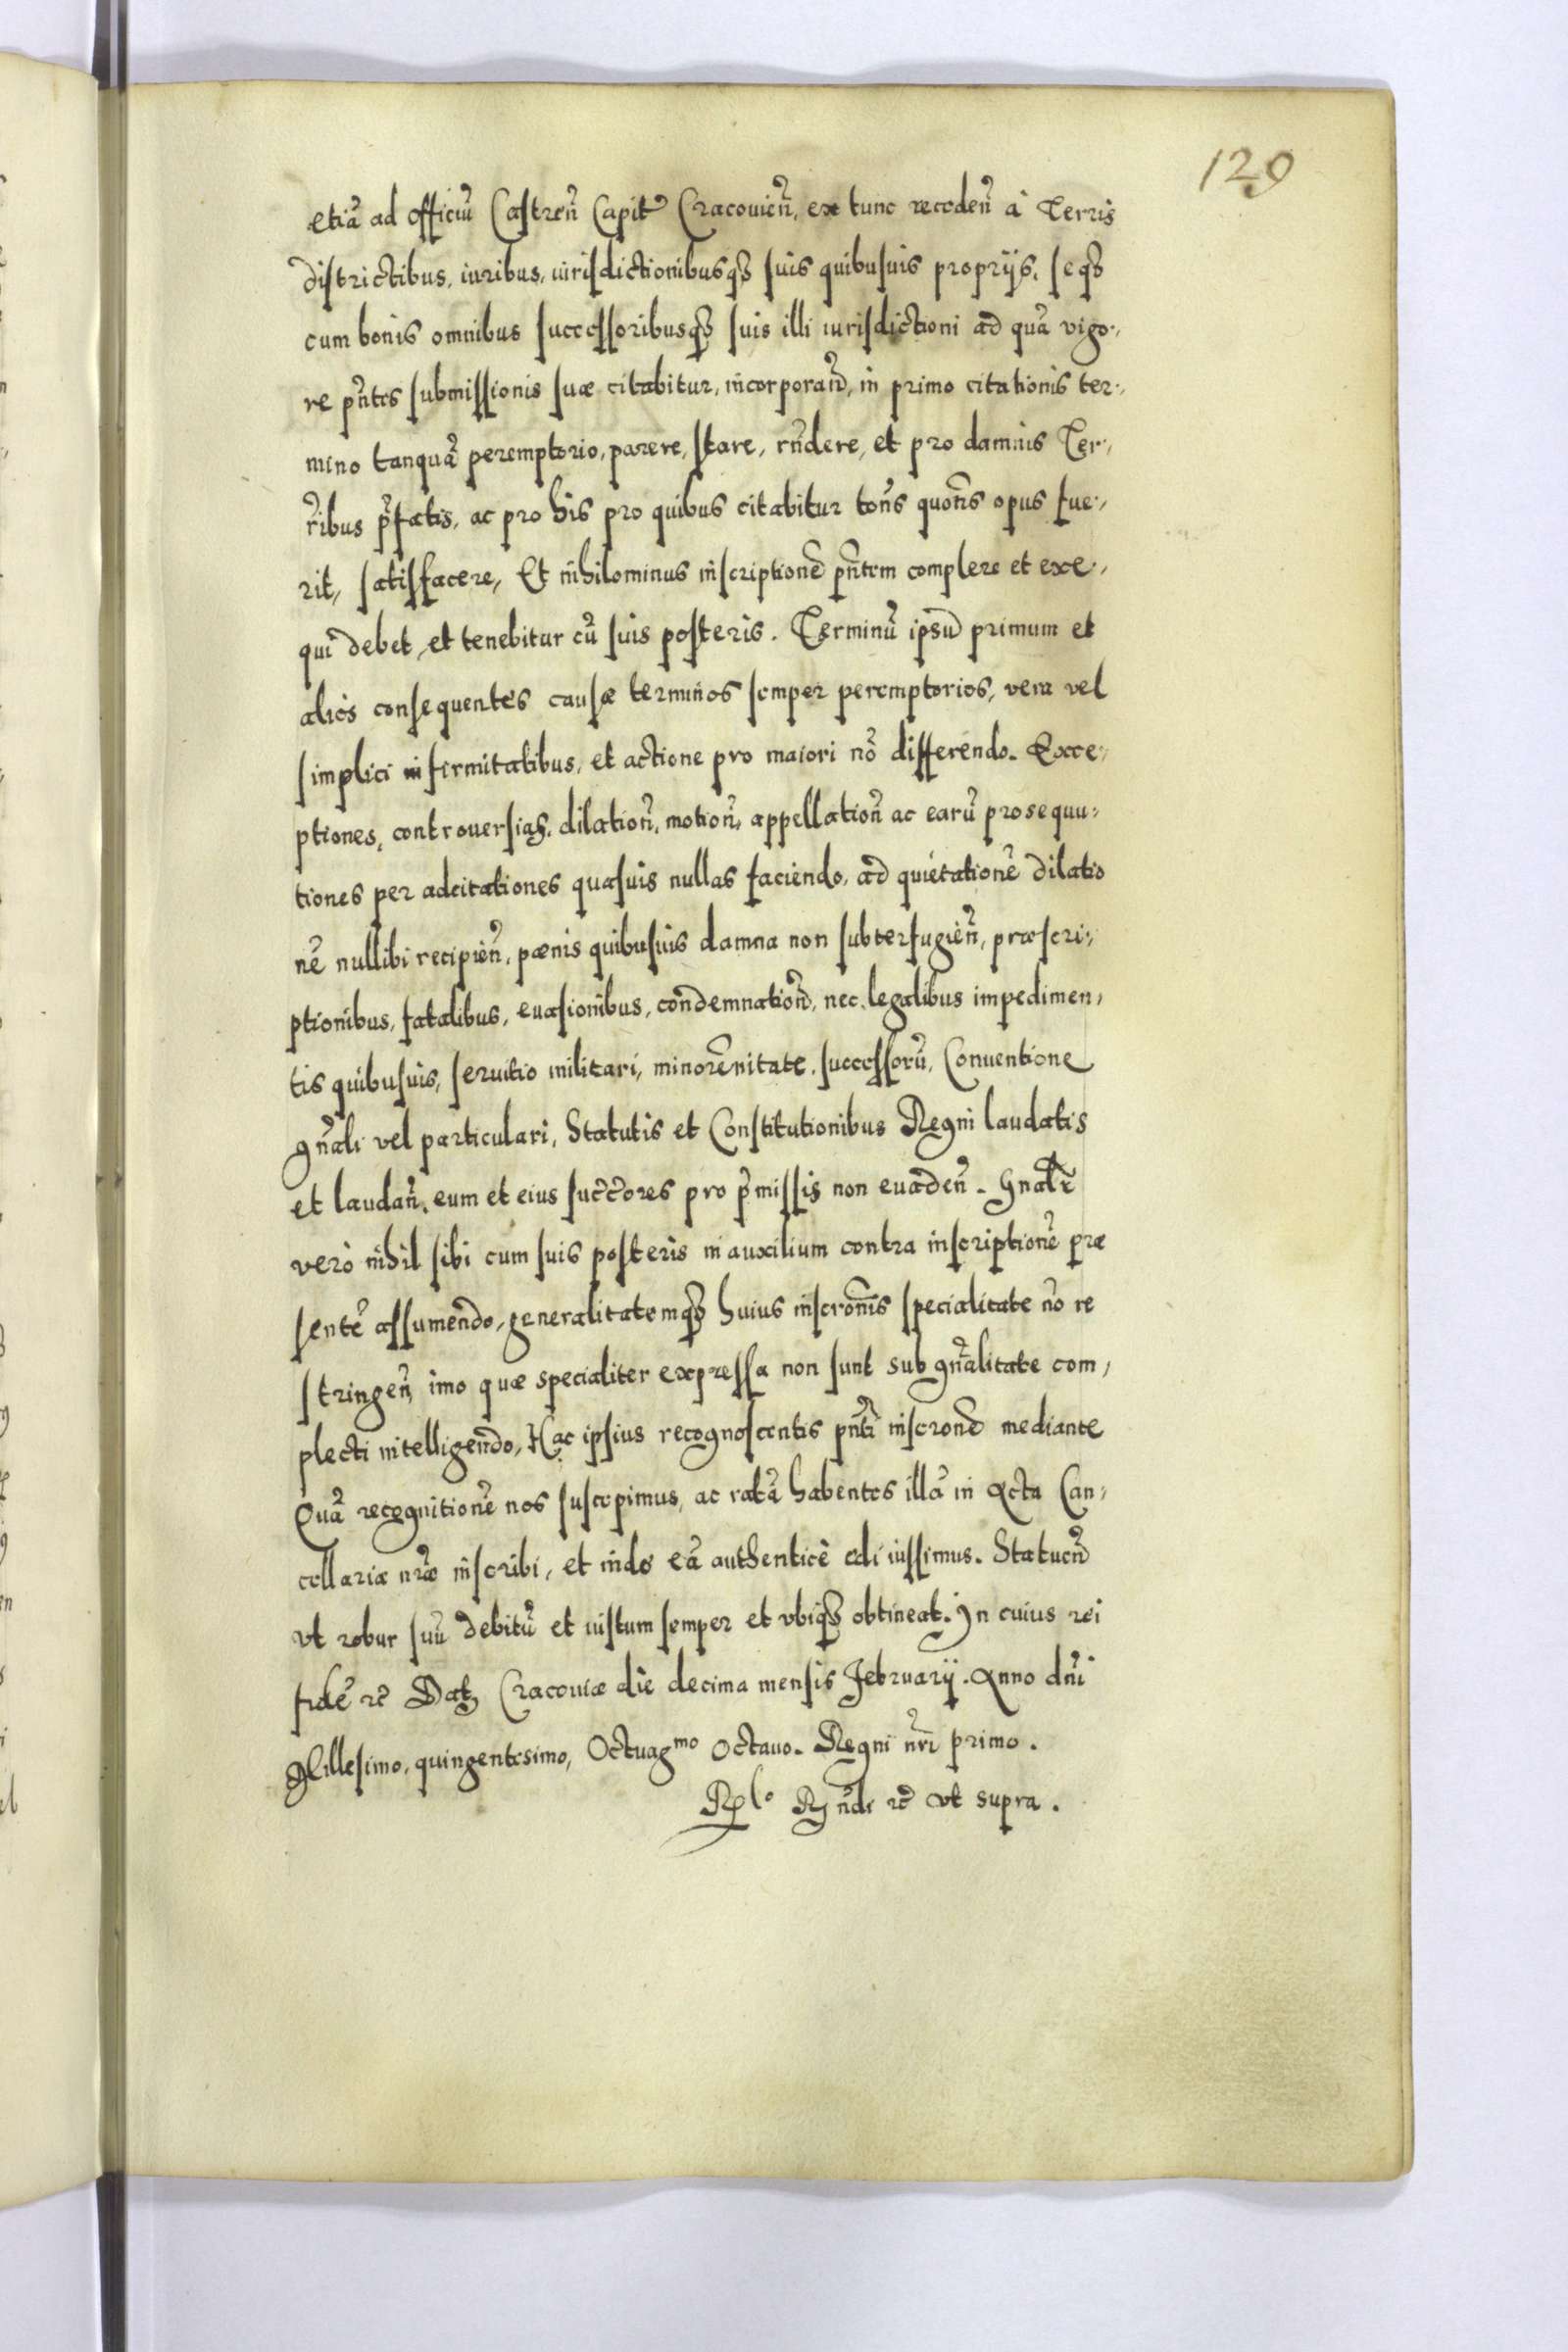 129
etiã ad officiũ Castreñ Capit Cracovieñ, ex tunc recedeñ à Terris
districtibus, iuribus, iurisdictionibusq3 suis quibusuis proprijs, seq3
cum bonis omnibus successoribusq3 suis illi iurisdictioni ad quã vigo-,
re pñtis submissionis suæ citabitur, incorporañd, in primo citationis ter-,
mino tanquã peremptorio, parere, stare, rñdere, et pro damnis Ter-,
r̃ibus p̃fatis, ac pro his pro quibus citabitur toñs quoñs opus fue-,
rit, satisfacere, Et nihilominus inscriptionẽ pñtem complere et exe-,
qui debet, et tenebitur cũ suis posteris. Terminũ ipsũ primum et
alios consequentes causæ terminos semper peremptorios, vera vel
simplici infirmitatibus, et actione pro maiori nõ differendo. Exce-,
ptiones, controuersias, dilatioñ, motioñ, appellatioñ ac earũ prosequu-,
tiones per adcitationes quasuis nullas faciendo, ad quietationẽ dilatio
nẽ nullibi recipieñ, pænis quibusuis damna non subterfugieñ, præscri-,
ptionibus, fatalibus, euasionibus, condemnatioñ, nec legalibus impedimen-,
tis quibusuis, seruitio militari, minorẽnitate, successorũ, Conuentione
gñali vel particulari, Statutis et Constitutionibus Regni laudatis
et laudañ, eum et eius succ̃ores pro p̃missis non euadeñ. Gnalr̃
verò nihil sibi cum suis posteris in auxilium contra inscriptionẽ præ
sentẽ assumendo, generalitatemq3 huius inscroñis specialitate nõ re
stringeñ, imo quæ specialiter expressa non sunt sub gñalitate com-,
plecti intelligendo, Hac ipsius recognoscentis pñti inscrone mediante
Quã recognitionẽ nos suscepimus, ac ratã habentes illã in Acta Can-,
cellariæ nr̃æ inscribi, et inde eã authenticè edi iussimus. Statueñ
vt robur suũ debitũ et iustum semper et vbiq3 obtineat. In cuius rei
fidẽ rc̃ Dat3 Cracouiæ die decima mensis Februarij. Anno dñi
Millesimo, quingentesimo, Octuagmo Octauo. Regni nr̃i primo.
Rndi rc̃ vt supra.